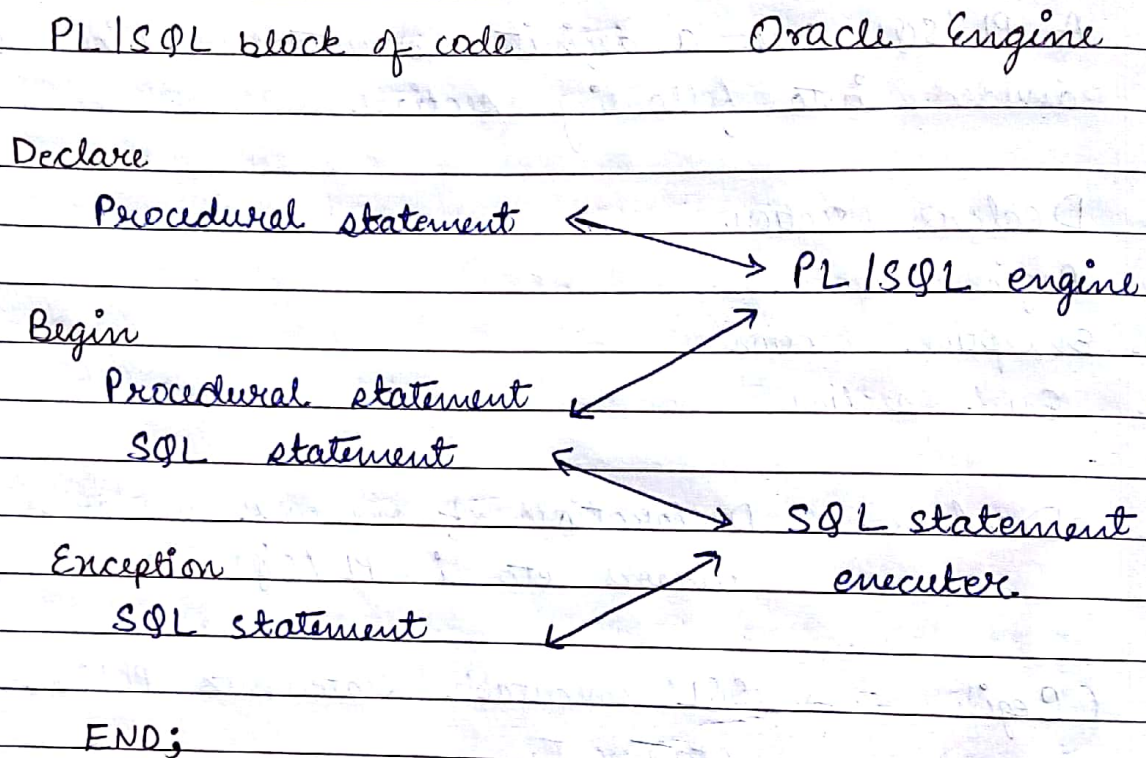 PL/SQL block of code Oracle Engine
Declare
Procedural statement
PL/SQL engine
Begin
Procedural statement
SQL statement
SQL statement
Exception
executer.
SQL statement
END;